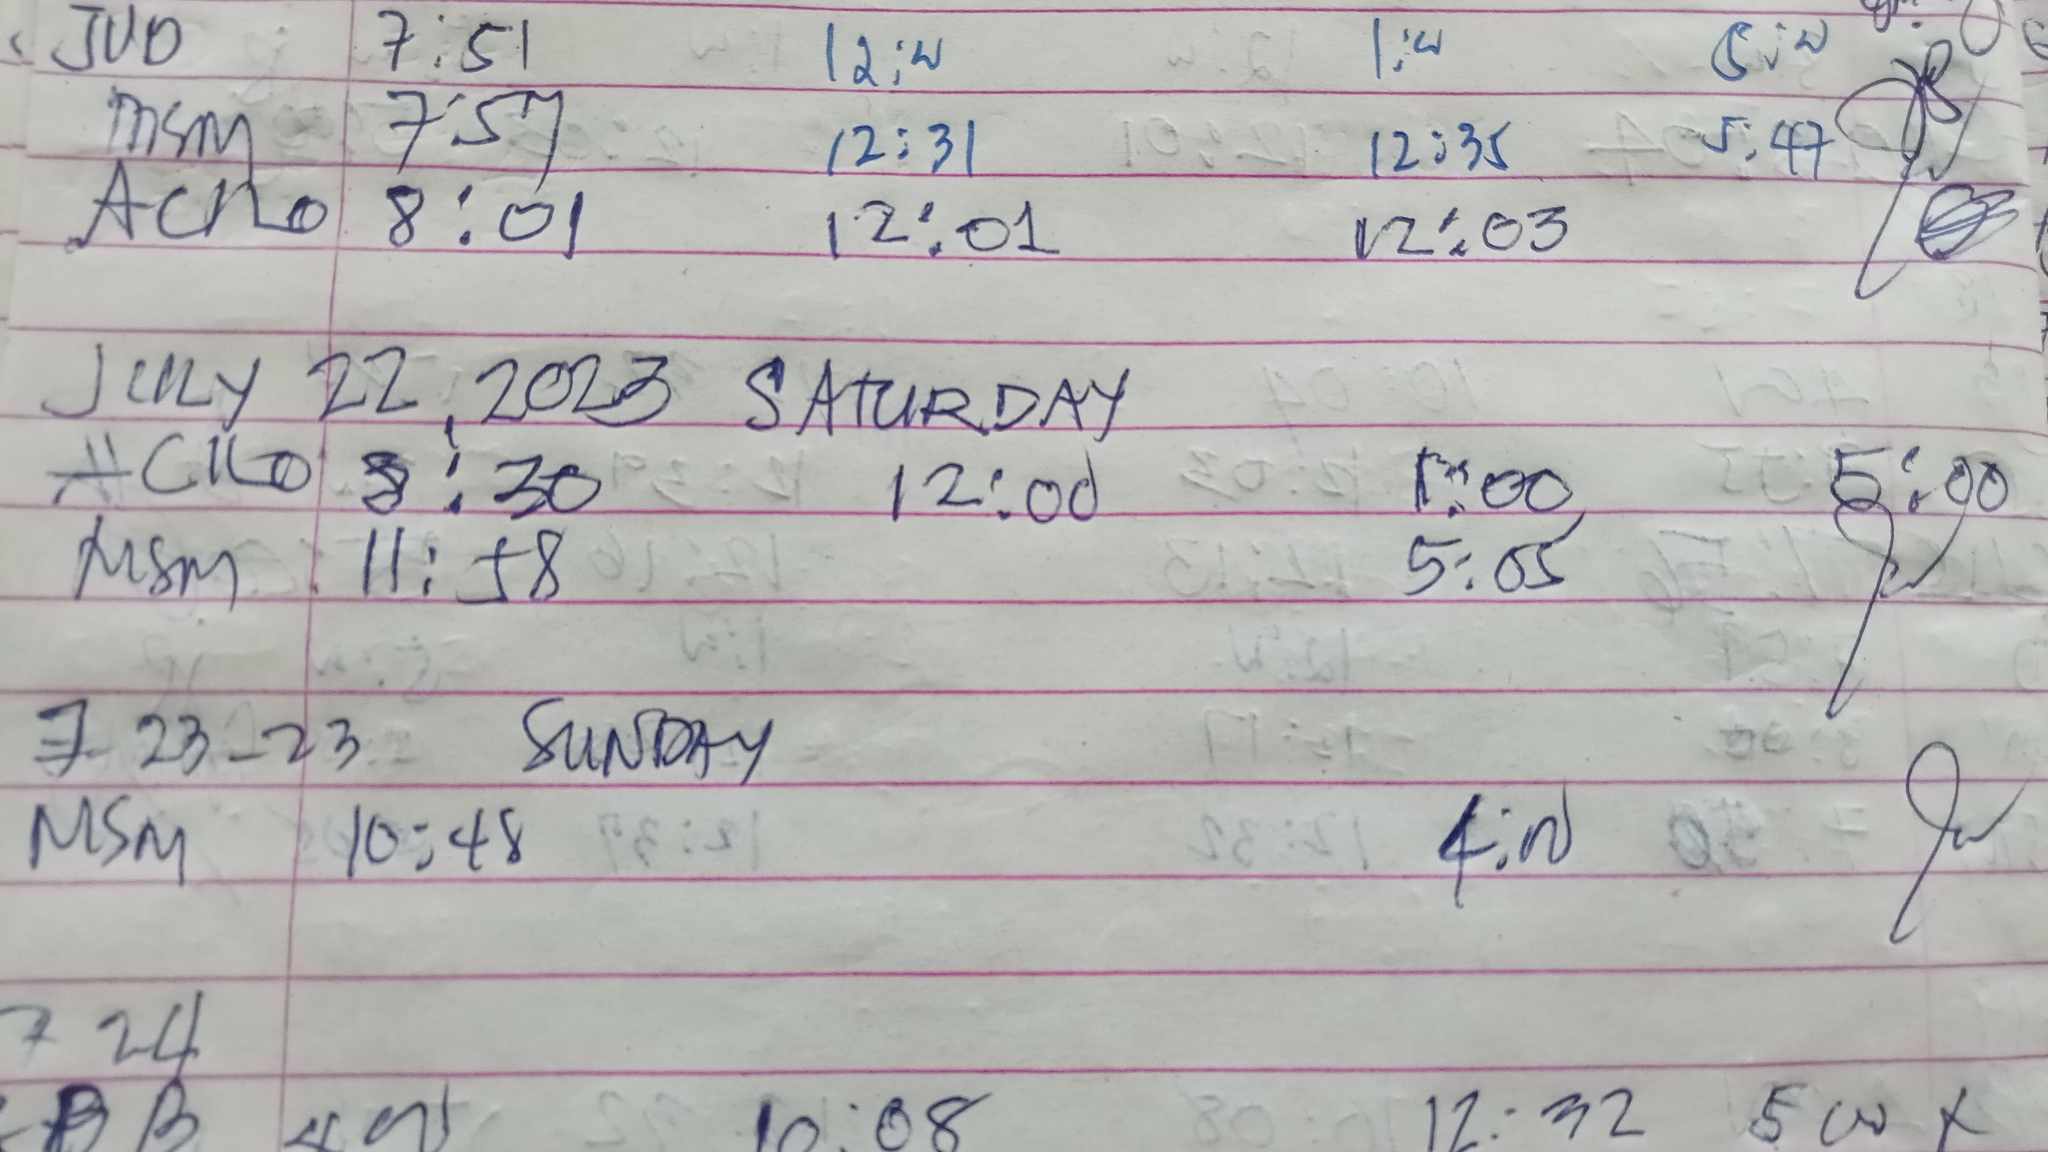 JVD 7:51 12:00 1:00 5:00
MSM 7:57 12:31 12:35 5:47
ACKLO 8:01 12:01 12:03
JULY 22, 2023 SATURDAY
ACKLO 8:30 12:00 1:00 5:00
MSM 11:58 5:05
7-23-23 SUNDAY
MSM 10:48 4:00
7 24
10:08 12:32 500